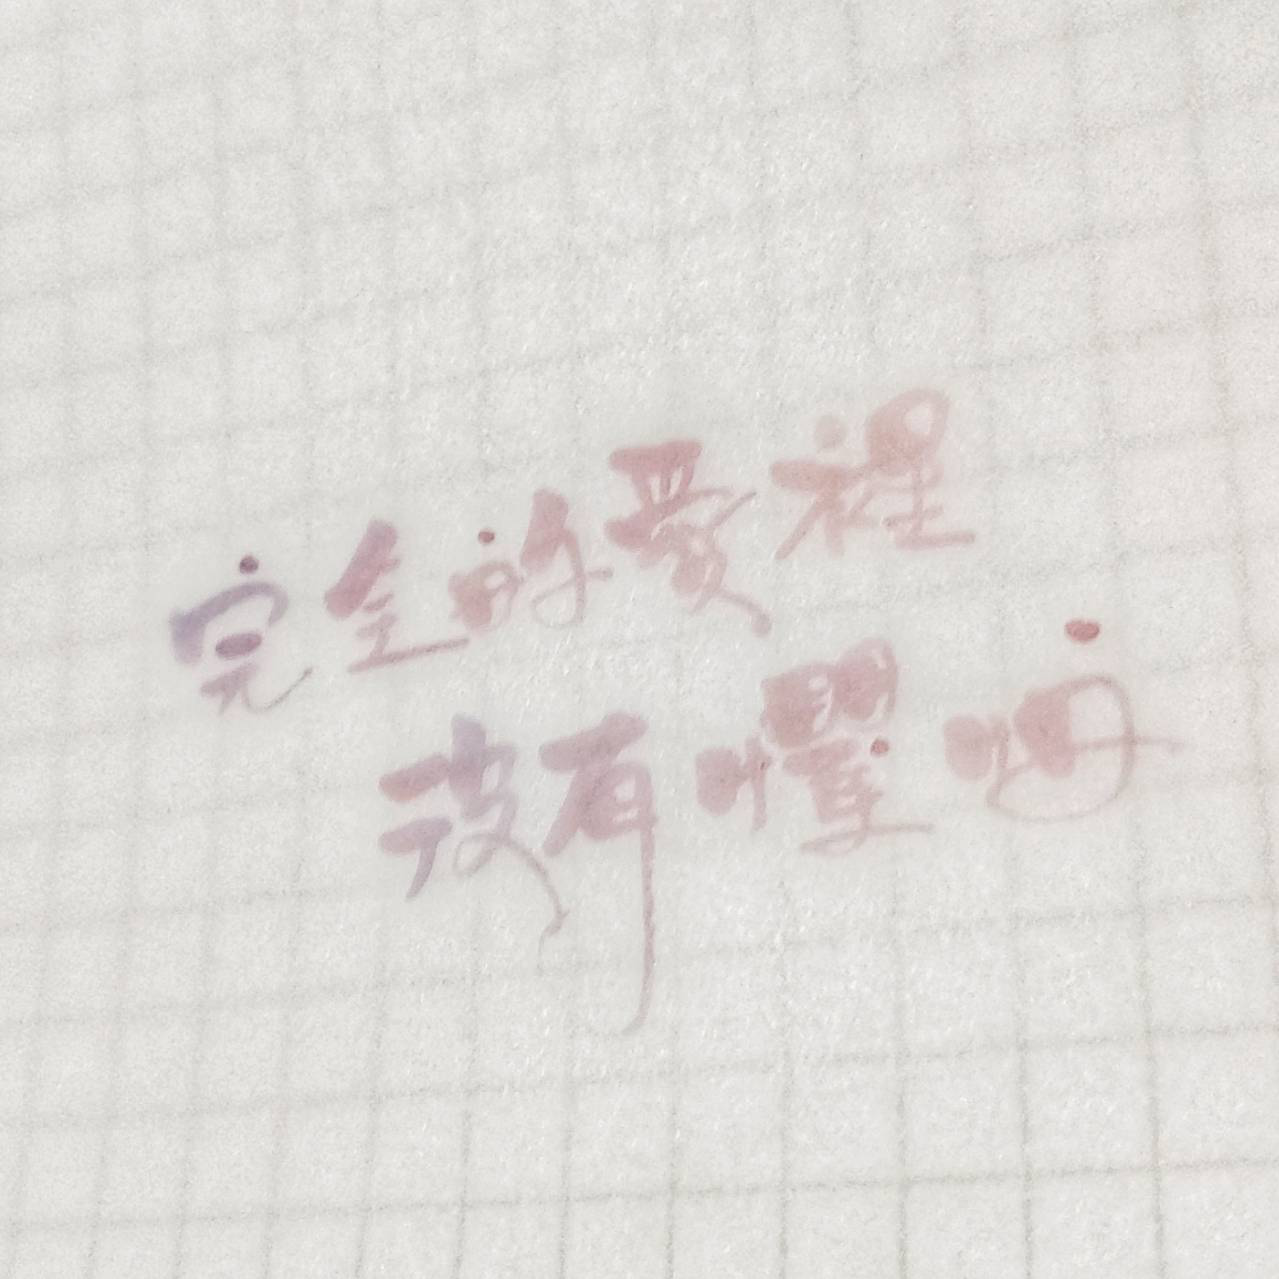 完全的愛裡
沒有懼怕